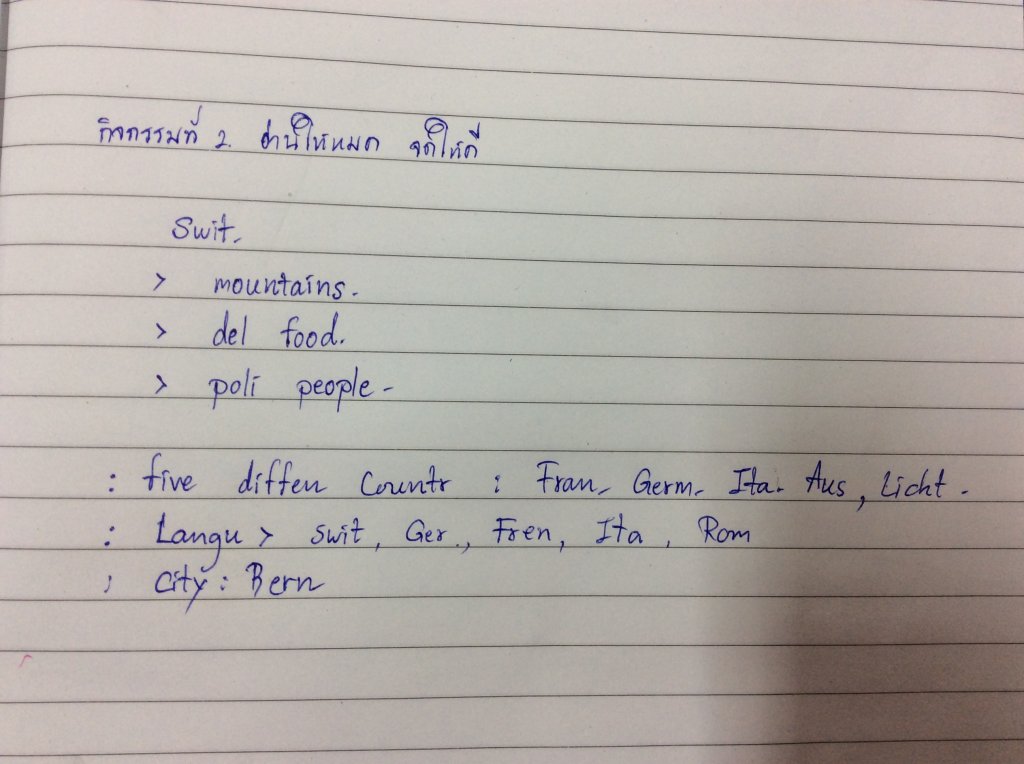 กิจกรรมที่ 2. อ่านให้หมด จดให้ดี
Swit.
> mountains.
> del food.
> poli people -
: five diffen Countr : Fran, Germ, Ita. Aus, Licht.
: Langu > Swit, Ger., Fren, Ita, Rom
; City : Bern